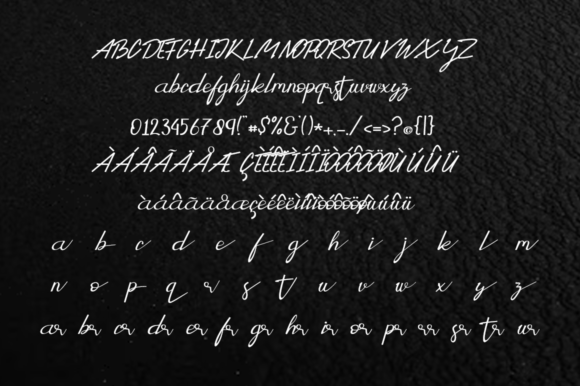 ABCDEFGHIJKLMNOPQRSTUVWXYZ
abcdefghijklmnopqrstuvwxyz
0123456789!"#$%&'()*+,-./<=>?©{|}
ÀÁÂÃÄÅÆÇÈÉÊËÌÍÎÏÒÓÔÕÖØÙÚÛÜ
àáâãäåæçèéêëìíîïòóôõöøùúûü
a b c d e f g h i j k l m
n o p q r s t u v w x y z
ar br cr dr er fr gr hr ir or pr rr sr tr ur